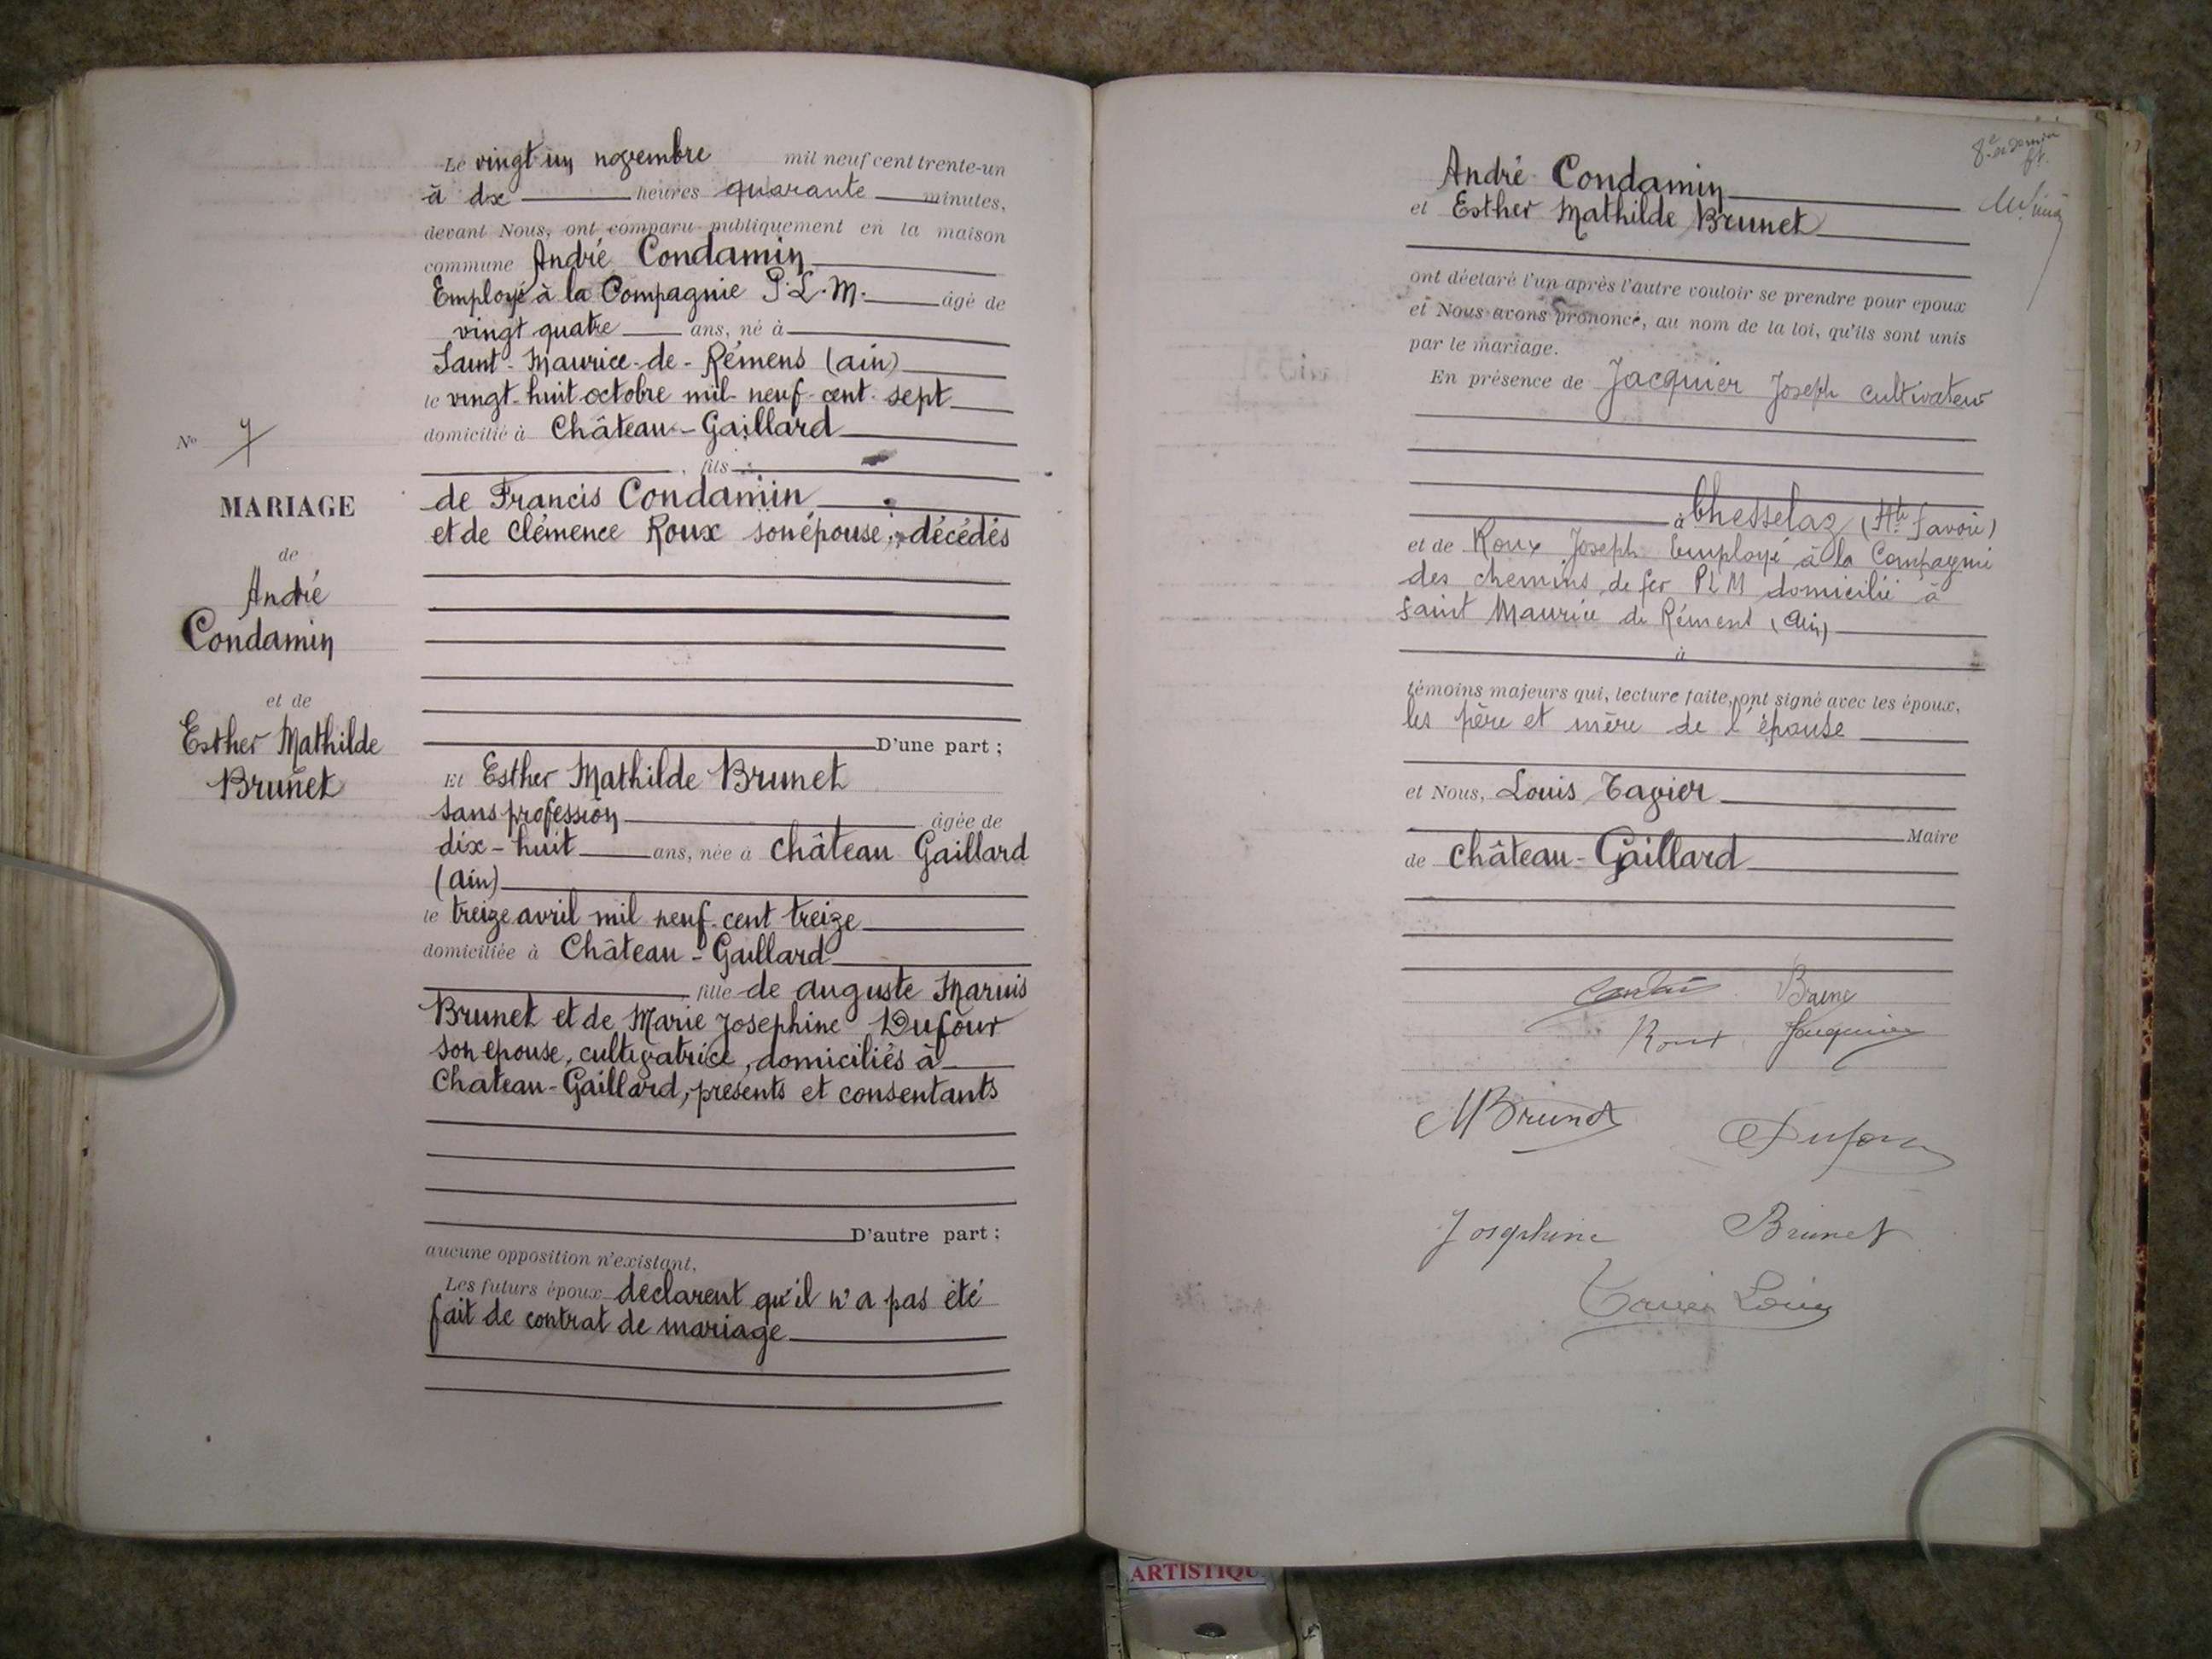 Le vingt un novembre mil neuf cent trente-un
à dix heures quarante minutes,
devant Nous, ont comparu publiquement en la maison
commune André Condamin
Employé à la Compagnie P.L.M. âgé de
vingt quatre ans, né à
Saint-Maurice-de-Rémens (ain)
le vingt-huit octobre mil-neuf-cent-sept
domicilié à Château-Gaillard
, fils
de Francis Condamin
et de Clémence Roux son épouse, décédés
D'une part ;
Et Esther Mathilde Brunet
sans profession âgée de
dix-huit ans, née à Château Gaillard
(ain)
le treize avril mil neuf cent treize
domiciliée à Château-Gaillard
, fille de auguste Marius
Brunet et de Marie Josephine Dufour
son epouse, cultivatrice, domiciliés à
Chateau-Gaillard, présents et consentants
D'autre part ;
aucune opposition n'existant,
Les futurs époux declarent qu'il n'a pas été
fait de contrat de mariage
No 7
MARIAGE
de
André
Condamin
et de
Esther Mathilde
Brunet
André Condamin
et Esther Mathilde Brunet
ont déclaré l'un après l'autre vouloir se prendre pour epoux
et Nous avons prononcé, au nom de la loi, qu'ils sont unis
par le mariage.
En présence de Jacquier Joseph cultivateur
à Chesselaz (Hte Savoie)
et de Roux Joseph Employé à la Compagnie
des chemins de fer PLM domicilié à
Saint Maurice de Rémens (Ain)
à
témoins majeurs qui, lecture faite, ont signé avec les époux,
les père et mère de l'épouse
et Nous, Louis Tavier
Maire
de Château-Gaillard
Roux Jacquier
MBrunet Dufour
Josephine Brunet
Tavier Louis
ARTISTIQU